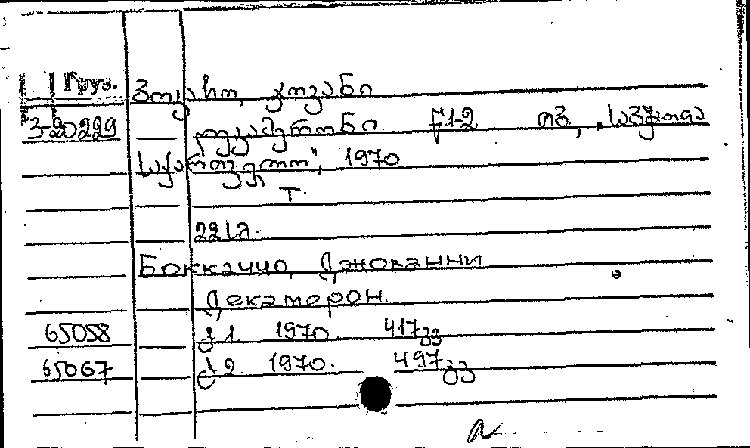 Груз. ბოკაჩო, ჯოვანი
320299 დეკამერონი წ1-2 თბ, „საბჭოთა
საქართველო", 1970
Т.
221 გ.
Боккаччо, Джованни
Декамерон.
65058 წ 1. 1970 417 გვ
65067 წ 2. 1970. 497 გვ